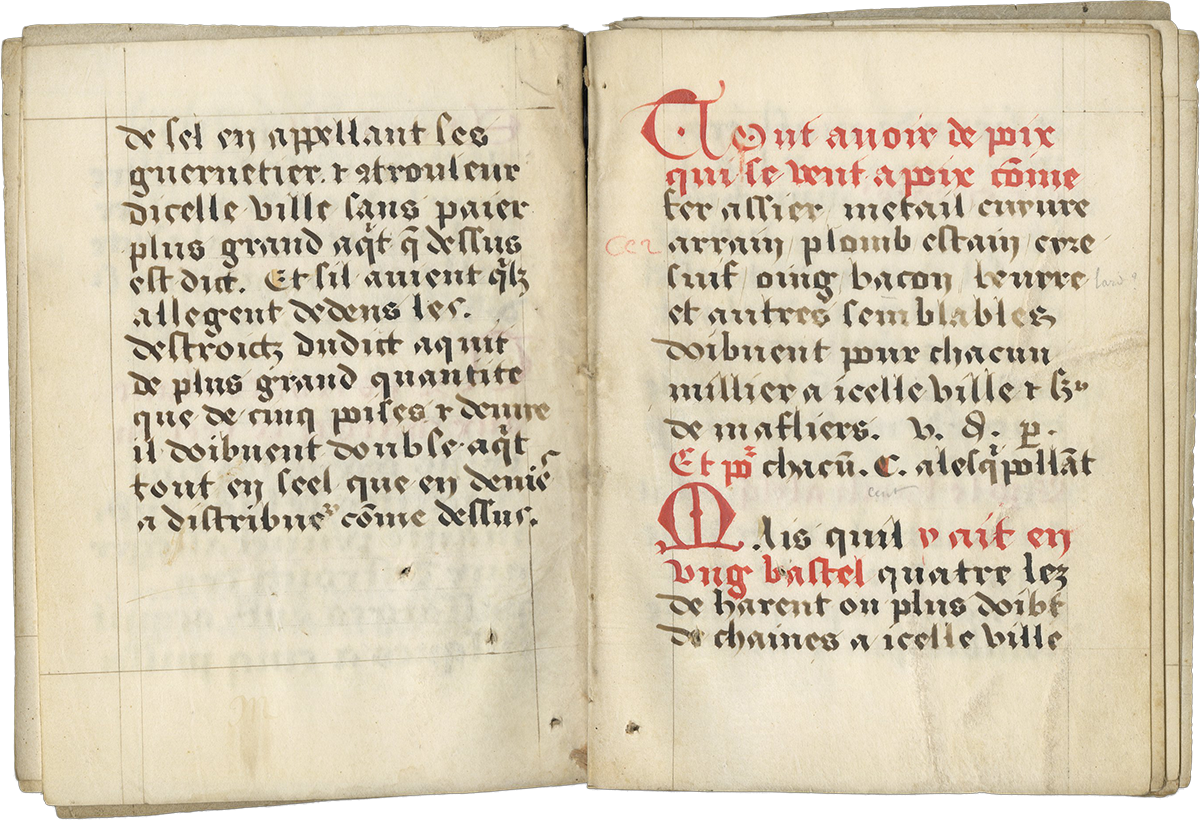 de sel en appellant ses
guernetier. ⁊ ꝯtrouleur
dicelle ville sans paier
plus grand aq̃t q̃ dessus
est dict. Et sil auient q̃lz
allegent dedens les.
destroictz dudict aquit
de plus grand quantite
que de cinq poises ⁊ demie
il doibuent double aq̃t
tout en seel que en denies
a distribuer cõme dessus.
Tout auoir de poix
qui se vent a poix cõme
fer assier / metail cuyure
arrain / plomb estain / cyre
suif / oing / bacon / beurre
et autres semblables
doibuent pour chacun
millier a icelle ville ⁊ sr
de mafliers. v. d. p.
Et por chacũ. C. alesq̃pollãt
cent
Mais quil y ait en
vng bastel quatre lez
de harent ou plus doibt
de chaines a icelle ville